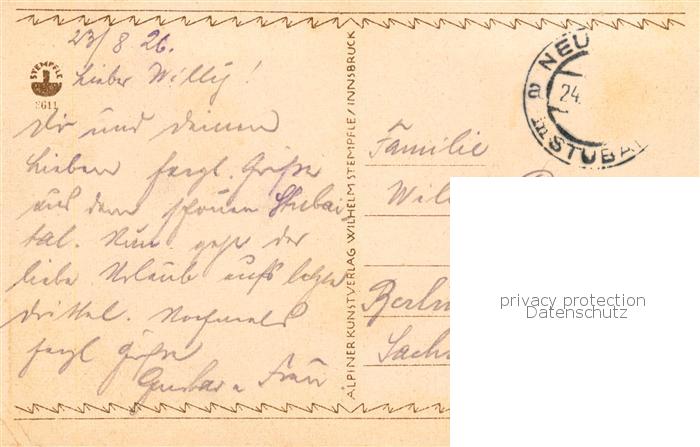 23/8 26.
Lieber Willy!
Dir und deinen
Lieben herzl. Grüße
aus dem schönen Stubai-
tal. Nun geht der
liebe Urlaub aufs letzte
Drittel. Nochmals
herzl Grüße
Gustav u Frau
STEMPFLE
ALPINER KUNSTVERLAG WILHELM STEMPFLE/INNSBRUCK
NEU
24.
in STUBAI
Familie
Wil
Berlin
Sachs
privacy protection
Datenschutz